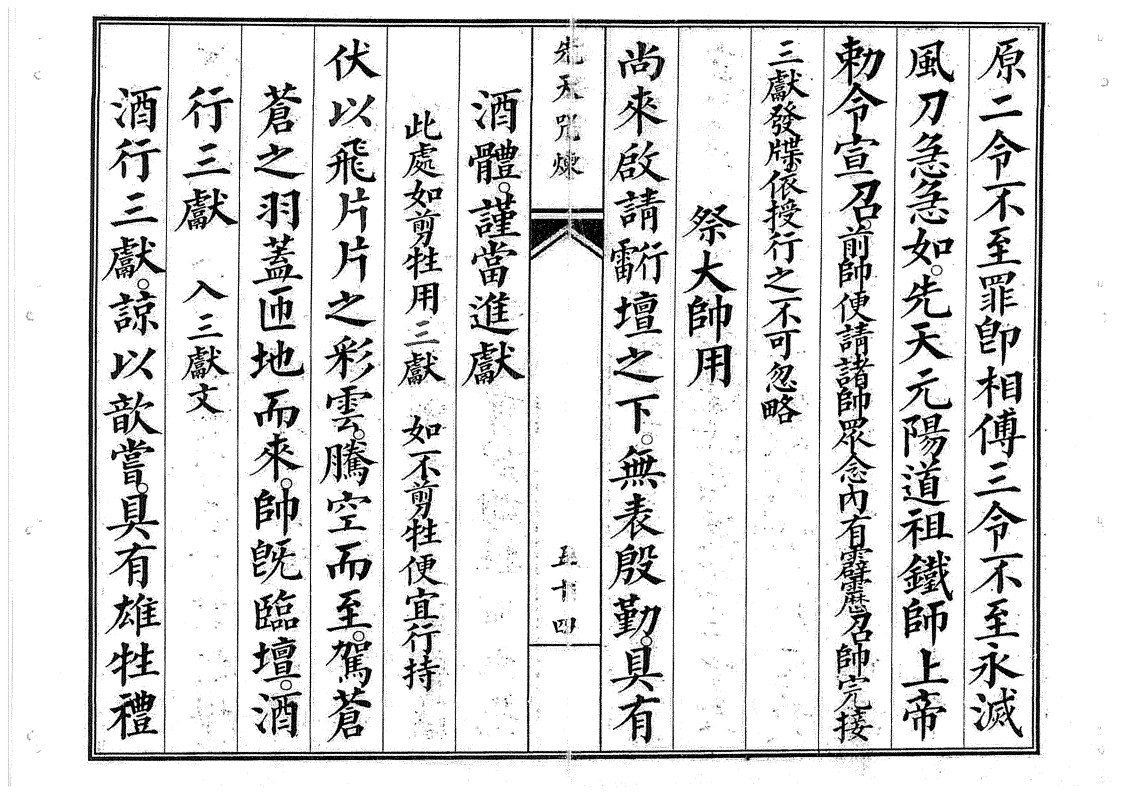 原二令不至罪卽相傅三令不至永滅
風刀急急如。先天元陽道祖鐵師上帝
勅令宣召。前帥便請諸帥眾念內有霹靂召帥完接
三獻發牒依授行之不可忽略
祭大帥用
尚來啟請雷行壇之下。無表殷勤。具有
先天咒煉
五十四
酒體。謹當進獻
此處如剪牲用三獻 如不剪牲便宜行持
伏以飛片片之彩雲。騰空而至。駕蒼
蒼之羽蓋匝地而來。帥旣臨壇。酒
行三獻 入三獻文
酒行三獻。諒以歆嘗。具有雄牲禮